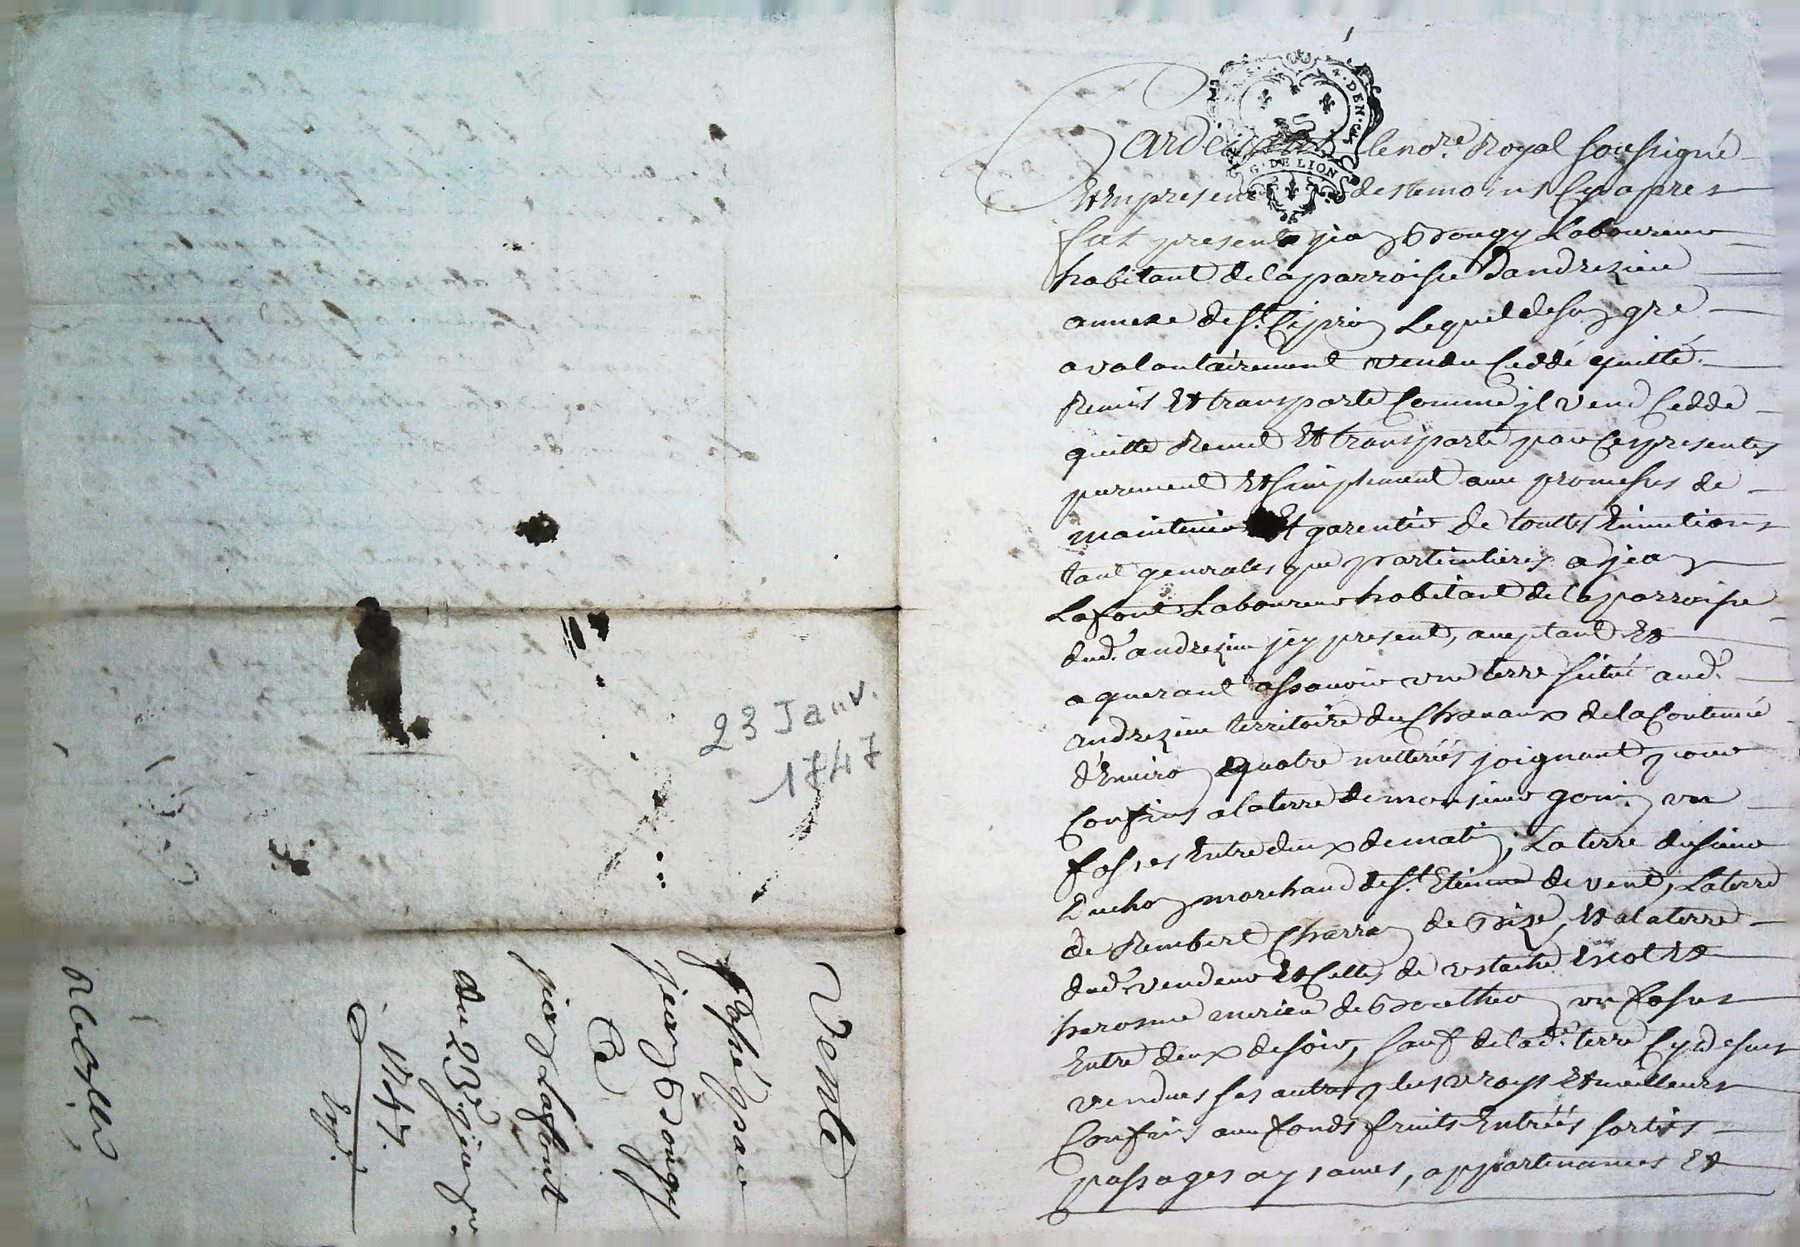 23 Janv.
1747
Vente
passé par
jean Bdougy
Ca
jean Lafont
du 23e jan
1747.
Expe.
G. DE LION
4. DEN.
Pardevant le nore. Royal soussigné
Et en presence des temoins Cy apres
fut present jean Bdougy Laboureur
habitant de la parroisse dandrezieu
annexe de st. Ciprien Lequel de son gré
a volontairement vendu Ceddé quitté
Remis Et transporté Comme jl vend Cedde
quitte Remet Et transporte par Ces presentes
purement Et simplement avec promesses de
maintenir Et garentir de touttes Evinctions
tant generales que particulieres a jean
Lafont Laboureur habitant de la parroisse
dud. andrezieu jcy present, aceptant Et
aquerant assavoir une terre scitué aud.
andrezieu territoire du Chanaux de la Contenue
d'Environ quatre metterées joignant pour
Confins a la terre de monsieur gonin un
fosses Entre deux de matin, La terre du sieur
Duchon marchand de st. Etienne de vent, La terre
de Rembert Charra de bize, Et a la terre
dud. vendeur Et Celles de ustache
de un fosses
Entre deux de soir, sauf de lad. terre Cy dessus
vendues ses autres plus vrays Et meilleurs
Confins avec fonds fruits Entrées sorties
passages aysances, appartenances Et